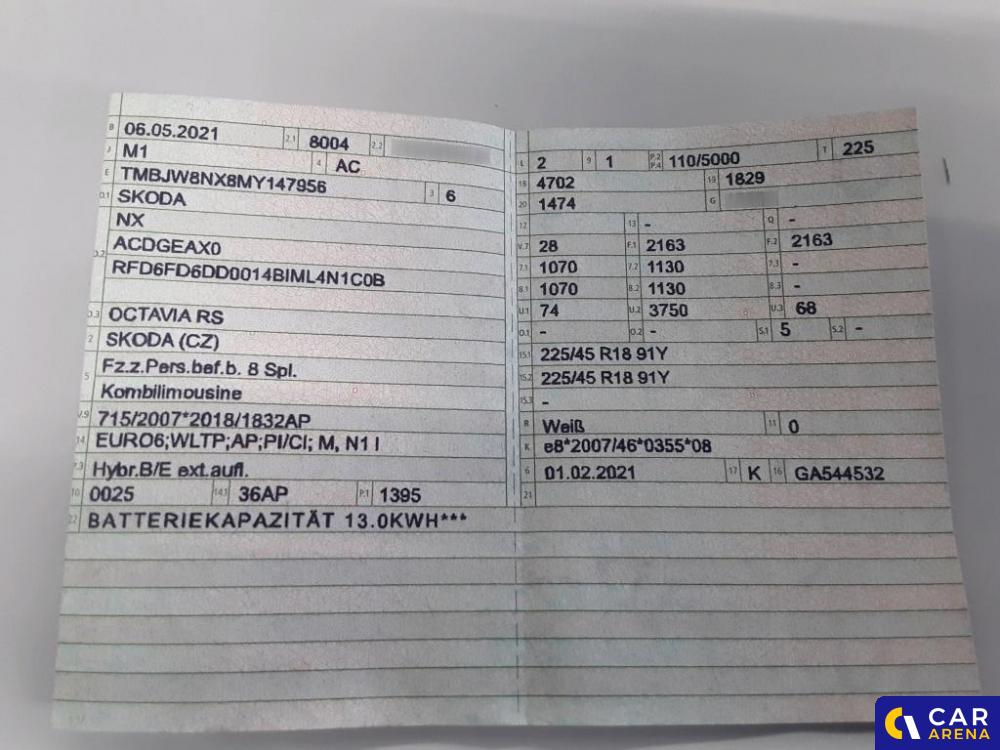 B 06.05.2021 2.1 8004 2.2
J M1 4 AC
E TMBJW8NX8MY147956 3 6
D.1 SKODA
NX
D.2 ACDGEAX0
RFD6FD6DD0014BIML4N1C0B
D.3 OCTAVIA RS
2 SKODA (CZ)
5 Fz.z.Pers.bef.b. 8 Spl.
Kombilimousine
V.9 715/2007*2018/1832AP
14 EURO6;WLTP;AP;PI/CI; M, N1 I
P.3 Hybr.B/E ext.aufl.
10 0025 14.1 36AP P.1 1395
22 BATTERIEKAPAZITÄT 13.0KWH***
L 2 9 1 P.2 P.4 110/5000 T 225
18 4702 19 1829
20 1474 G
12 - 13 - Q -
V.7 28 F.1 2163 F.2 2163
7.1 1070 7.2 1130 7.3 -
8.1 1070 8.2 1130 8.3 -
U.1 74 U.2 3750 U.3 68
O.1 - O.2 - S.1 5 S.2 -
15.1 225/45 R18 91Y
15.2 225/45 R18 91Y
15.3 -
R Weiß 11 0
K e8*2007/46*0355*08
6 01.02.2021 17 K 16 GA544532
21
CAR
ARENA